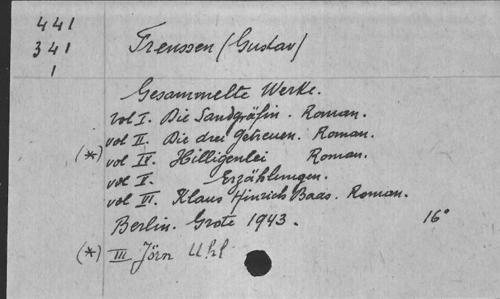 441
341
1
Frenssen (Gustav)
Gesammelte Werke.
vol I. Die Sandgräfin. Roman.
vol II. Die drei Getreuen. Roman.
(*) vol IV. Hilligenlei Roman.
vol V. Erzählungen.
vol VI. Klaus Hinrich Baas. Roman.
Berlin. Grote 1943. 16°
(*) III Jörn Uhl